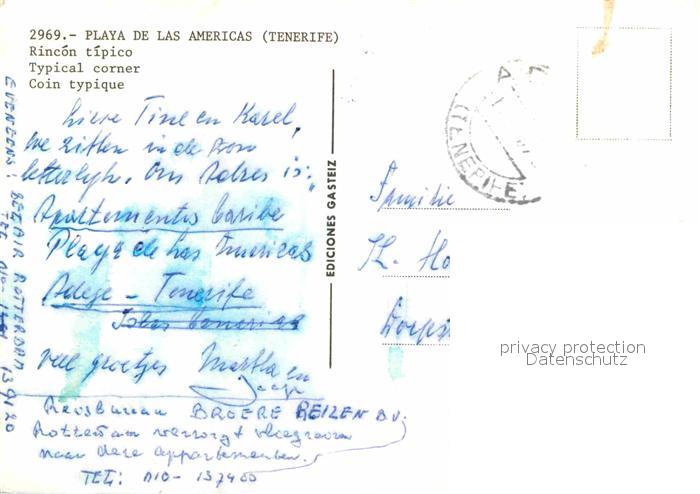 2969.- PLAYA DE LAS AMERICAS (TENERIFE)
Rincón típico
Typical corner
Coin typique
Lieve Tine en Karel,
we zitten in de zon
letterlyk. Ons Adres is:
Apartementos Caribe
Playa de Las Americas
Adeje - Tenerife
Islas Canarias
veel groetjes Martha en
Jaap
Reisbureau BROERE REIZEN B.V.
Rotterdam verzorgt vliegreizen
naar deze appartementen.
TEL: 010-137400
EVENEENS: BELAIR ROTTERDAM
TEL 010-
139120
EDICIONES GASTEIZ
(TENERIFE)
Familie
Th. Ho
privacy protection
Datenschutz